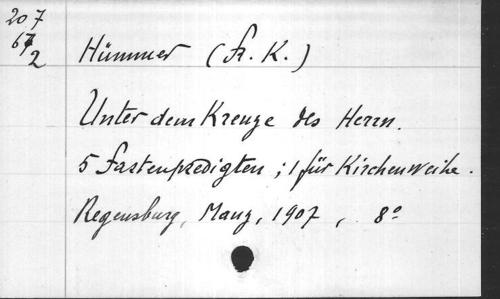 207
67
2
Hümmer (Fr. K.)
Unter dem Kreuze des Herrn.
5 Fastenpredigten ; 1 für Kirchenweihe.
Regensburg, Manz, 1907, 8°